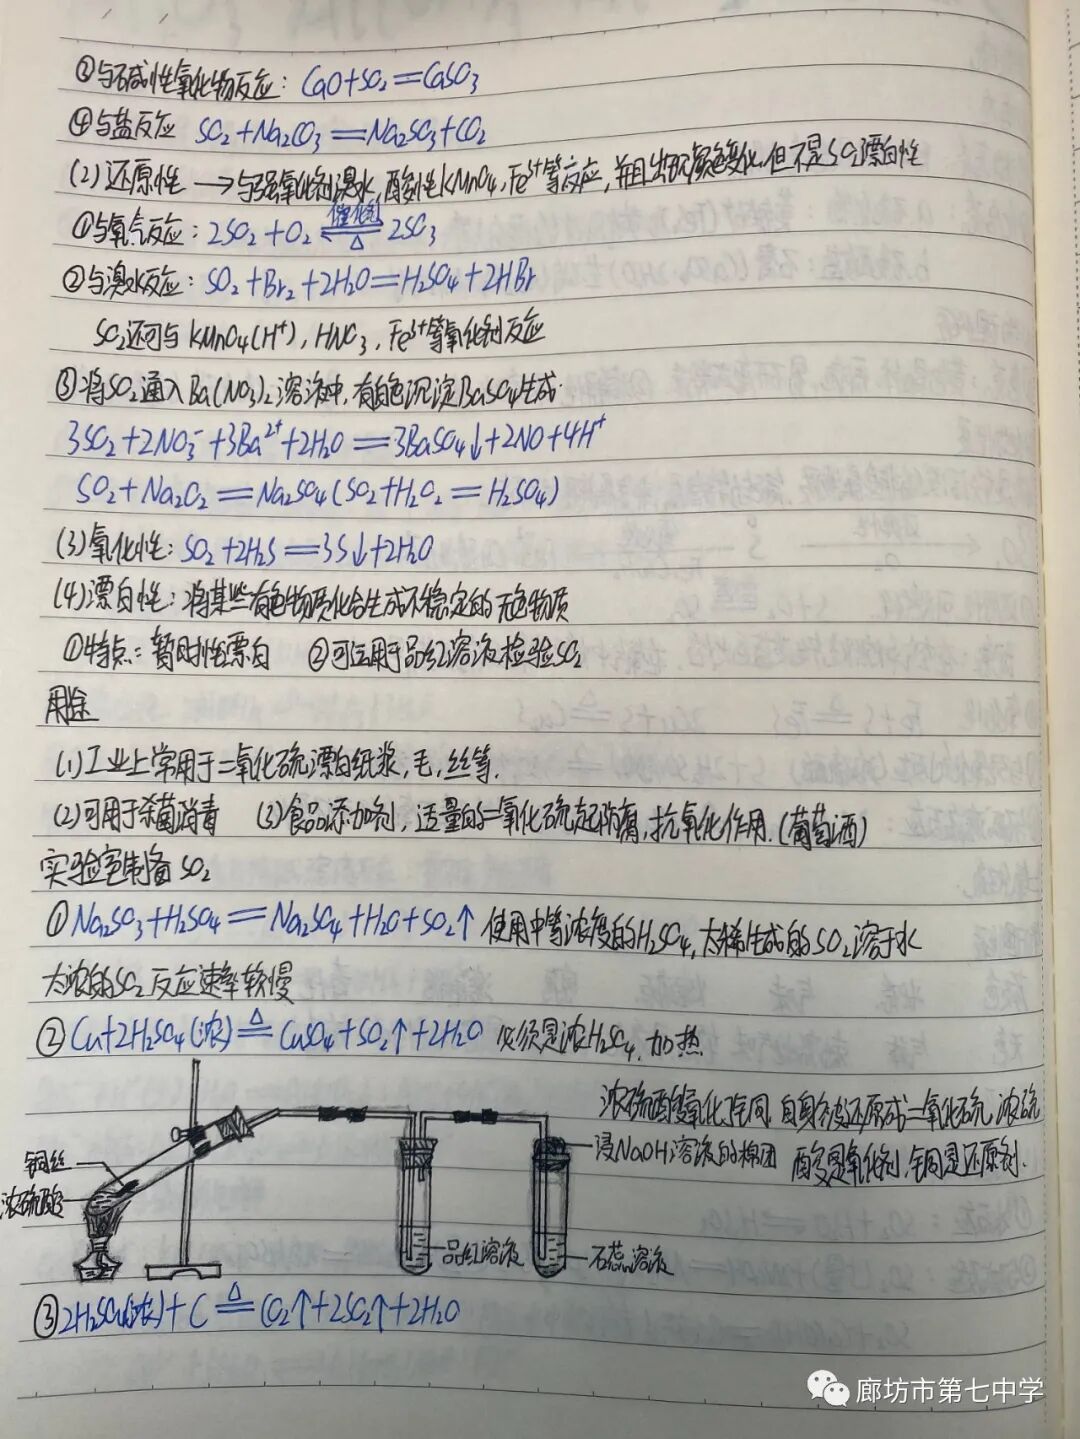 ③与碱性氧化物反应：CaO+SO₂=CaSO₃
④与盐反应 SO₂+Na₂CO₃=Na₂SO₃+CO₂
(2)还原性→与强氧化剂溴水，酸性KMnO₄，Fe³⁺等反应，并且出现颜色变化，但不是SO₂漂白性
①与氧气反应：2SO₂+O₂⇌2SO₃ 催化剂 △
②与溴水反应：SO₂+Br₂+2H₂O=H₂SO₄+2HBr
SO₂还可与KMnO₄(H⁺)，HNO₃，Fe³⁺等氧化剂反应
③将SO₂通入Ba(NO₃)₂溶液中，有白色沉淀BaSO₄生成.
3SO₂+2NO₃⁻+3Ba²⁺+2H₂O=3BaSO₄↓+2NO+4H⁺
SO₂+Na₂O₂=Na₂SO₄(SO₂+H₂O₂=H₂SO₄)
(3)氧化性：SO₂+2H₂S=3S↓+2H₂O
(4)漂白性：将某些有色物质化合生成不稳定的无色物质
①特点：暂时性漂白 ②可运用于品红溶液检验SO₂
用途
(1)工业上常用于二氧化硫漂白纸浆，毛，丝等.
(2)可用于杀菌消毒 (3)食品添加剂，适量的二氧化硫起防腐，抗氧化作用.(葡萄酒)
实验室制备SO₂
①Na₂SO₃+H₂SO₄=Na₂SO₄+H₂O+SO₂↑ 使用中等浓度的H₂SO₄，太稀生成的SO₂溶于水
太浓的SO₂反应速率较慢
②Cu+2H₂SO₄(浓)≜CuSO₄+SO₂↑+2H₂O 必须是浓H₂SO₄，加热
浓硫酸氧化性同 自身被还原成二氧化硫，浓硫
酸是氧化剂，铜是还原剂.
铜丝
浓硫酸
浸NaOH溶液的棉团
品红溶液
石蕊溶液
③2H₂SO₄(浓)+C≜CO₂↑+2SO₂↑+2H₂O
廊坊市第七中学